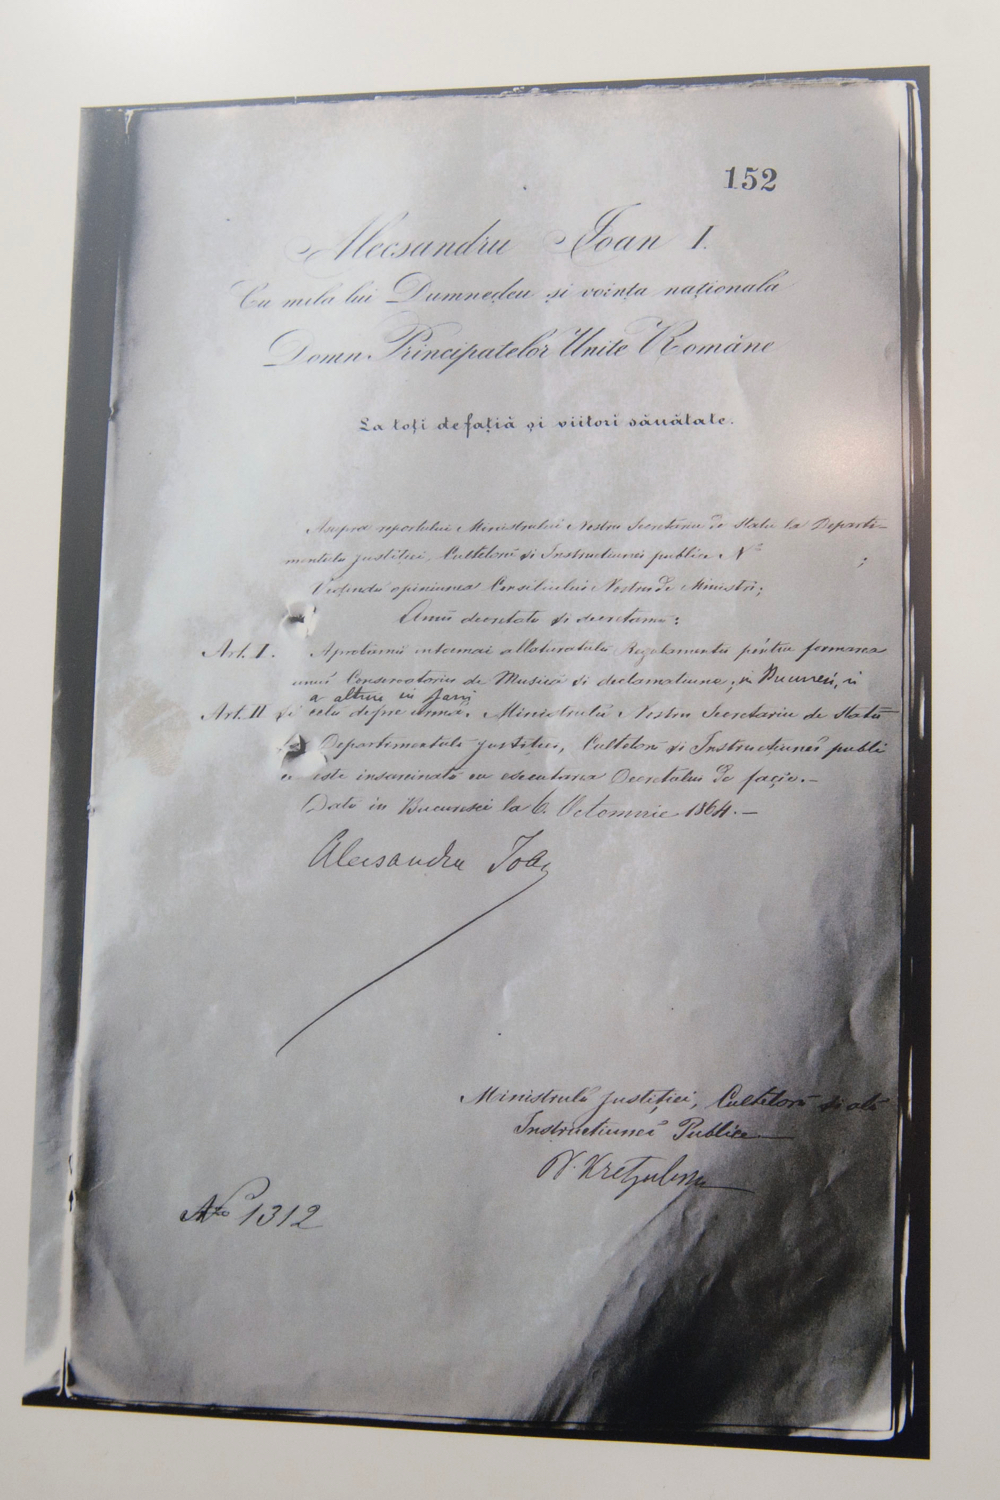 152
Alecsandru Ioan I.
Cu mila lui Dumneḑeu și voința naționala
Domn Principatelor Unite Române
La toți de față și viitori sănătate.
Asupra reportului Ministrului Nostru Secretariu de Statu la Departi-
mentulu justiției, Cultelorŭ și Instrucțiunei publice Nº ;
Veḑêndŭ opiniunea Consiliului Nostru de Ministri;
Amŭ decretatŭ și decretamŭ:
Art. I. Aprobămŭ întocmai alăturatulŭ Regulamentŭ pentru formarea
unuĭ Conservatoriu de Musică și declamațiune, in Bucureci, și
a altuia in Jassi
Art. II și celŭ despre urmă. Ministrulŭ Nostru Secretariu de Statŭ
Departimentulŭ justiției, Cultelorŭ și Instrucțiuneĭ publi
ce este însărcinatŭ cu esecutarea Decretului de façiă.—
Datŭ in Bucuresci la 6. Octomvrie 1864.—
Alecsandru Ioan
Ministrulŭ justiției, Cultelorŭ și alŭ
Instrucțiuneĭ Publice
N. Kretzulescu
No 1312